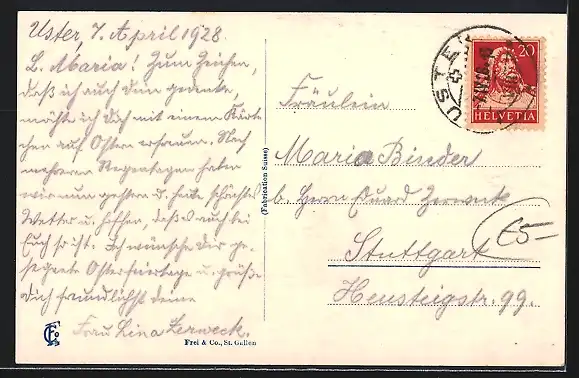 Uster, 7. April 1928.
L. Maria! Zum Zeichen,
daß ich auch dein gedenke,
möchte ich dich mit einem Kärt-
chen auf Ostern erfreuen. Nach
mehreren Regentagen haben
wir nun gestern u. heute schönstes
Wetter u. hoffen, daß es auch bei
Euch so ist. Ich wünsche dir ge-
segnete Osterfeiertage u. grüße
dich freundlichst deine
Frau Lina Zerweck.
(Fabrication Suisse)
Frei & Co., St. Gallen
USTER
20
HELVETIA
Fräulein
Maria Binder
b. Herrn Eduard Zerweck
Stuttgart
Heusteigstr. 99.
£5-